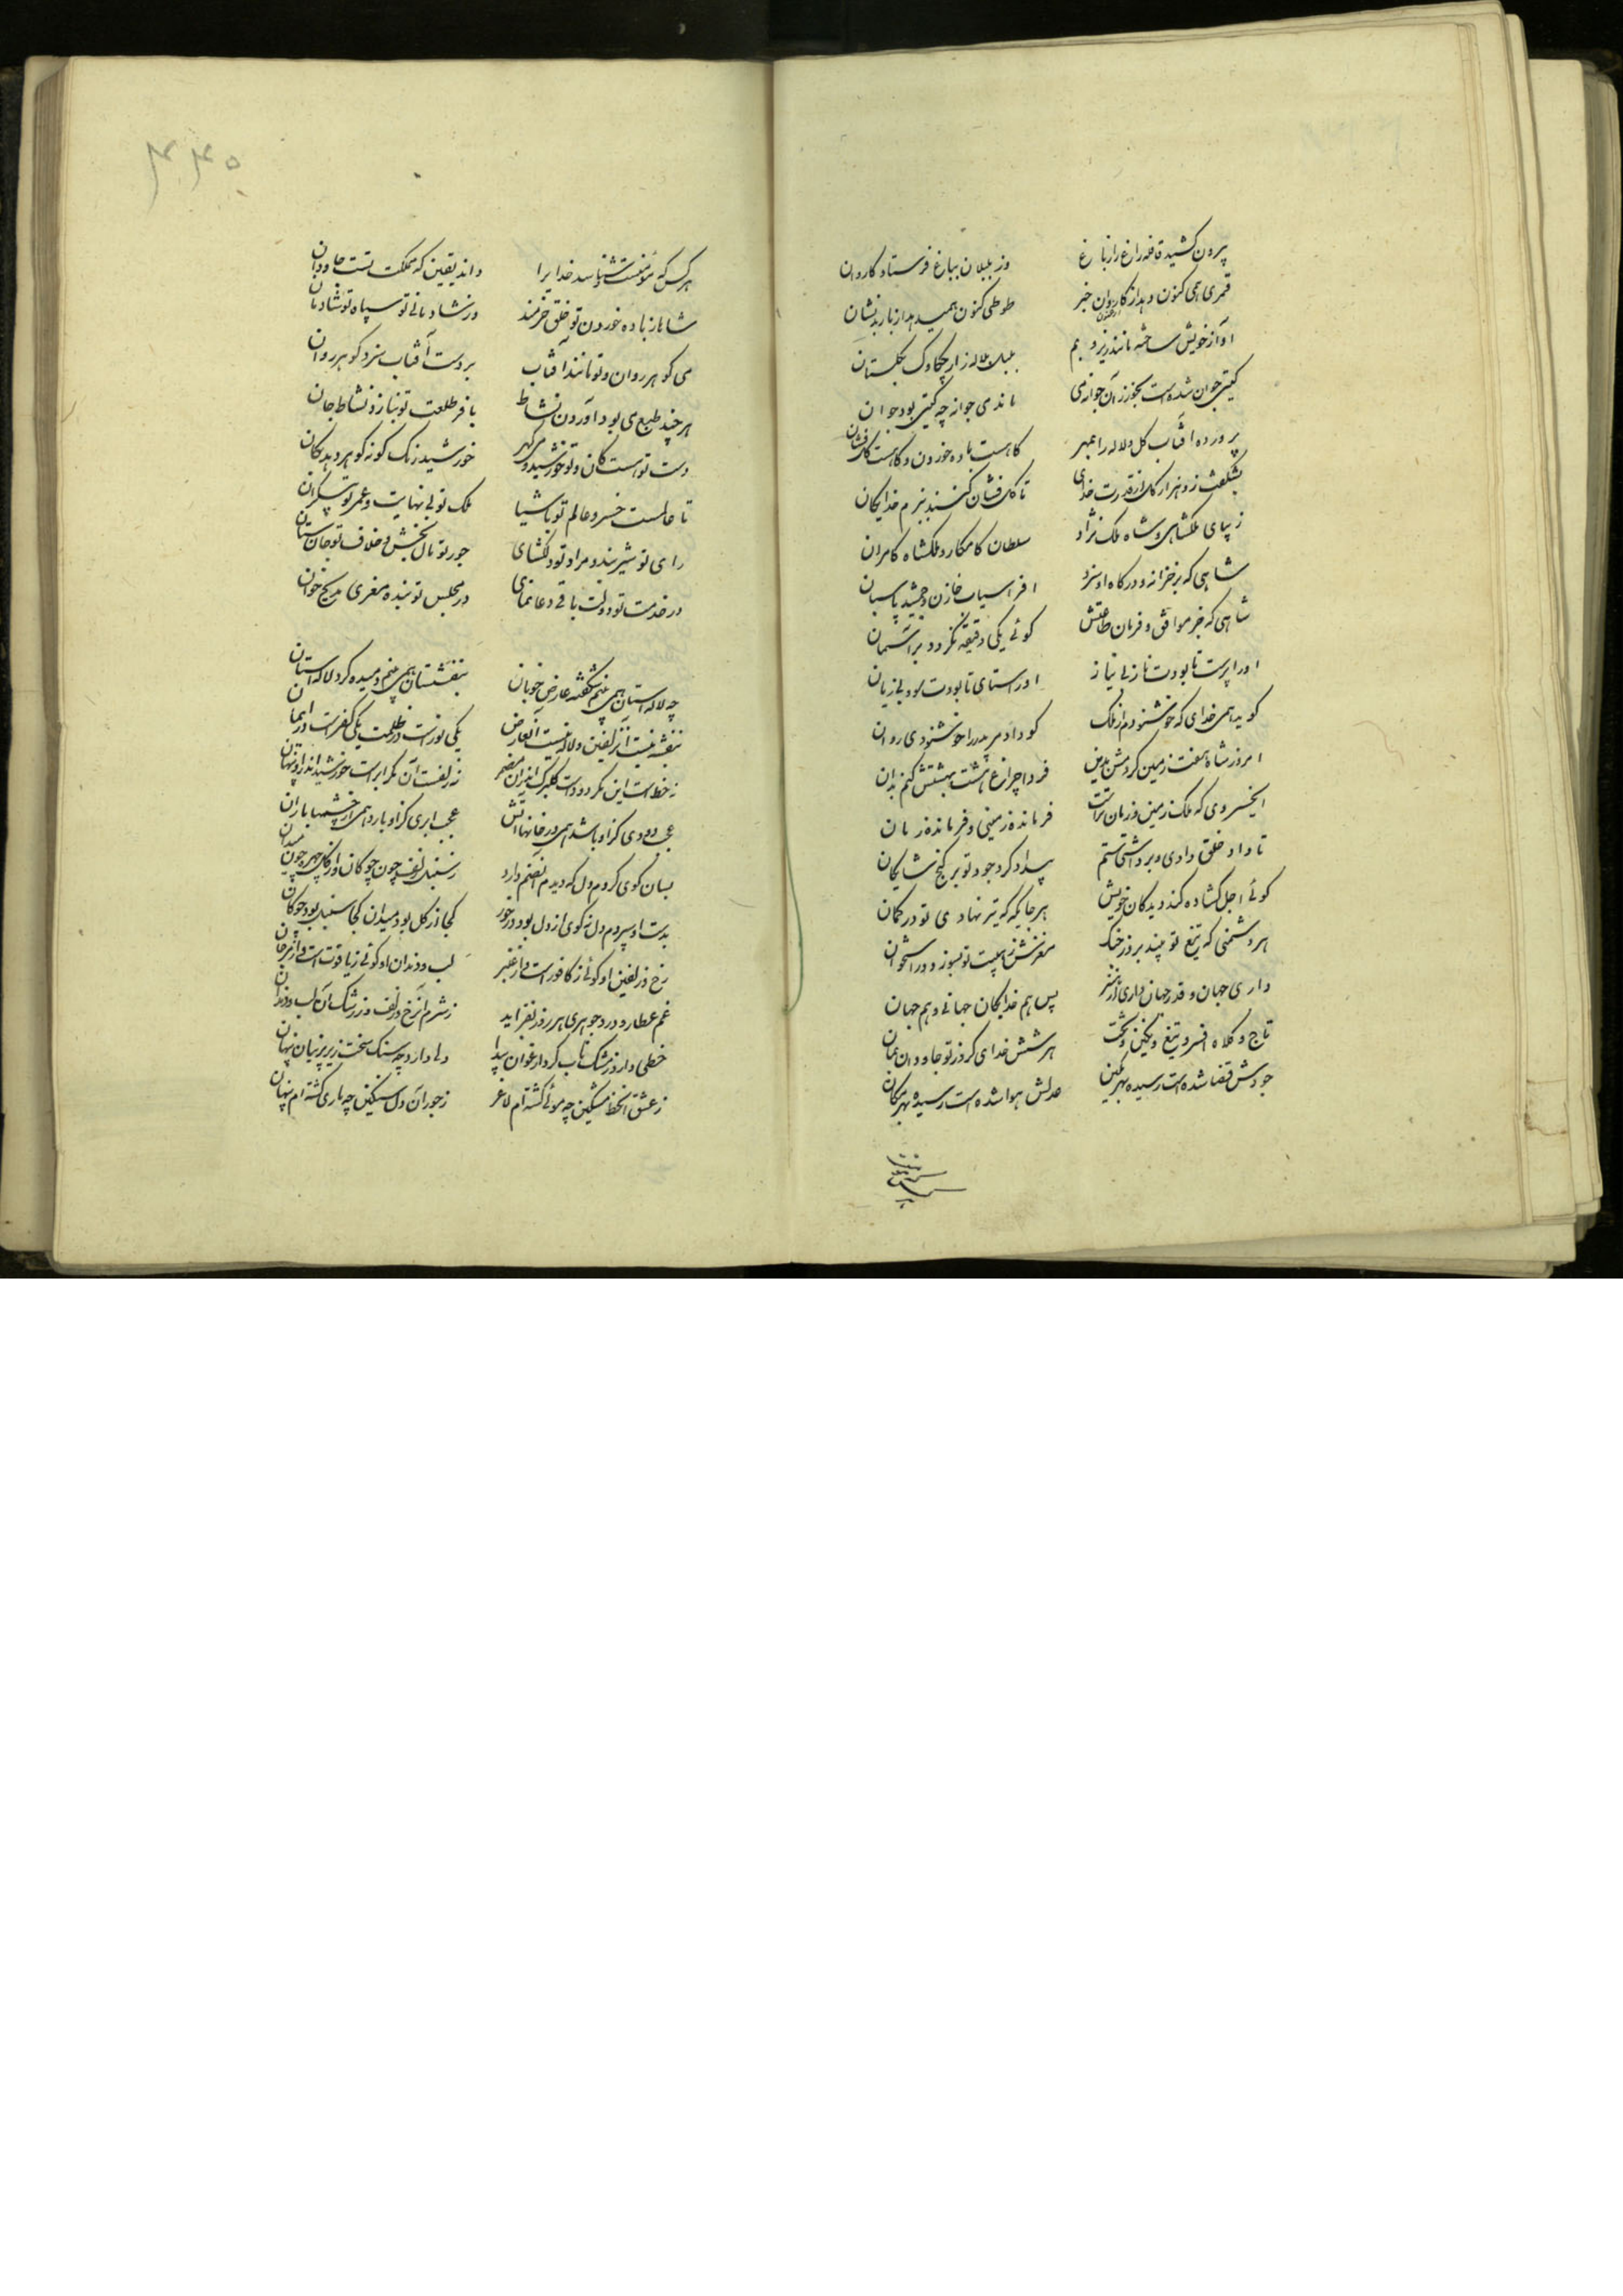 بیرون کشید قافله زاغ را ز باغ
وز بلبلان بباغ فرستاد کاروان
قمری همی کنون دهد از کاروان خبر
طوطی کنون همیدهد از باربد نشان
آواز خویش ساخته مانند زیر و بم
بلبل بلاله زار چکاوک بگلستان
گیتی جوان شده است بخور زان جوانه می
با ندمی جوانه چه گیتی بود جوان
پرورده آفتاب گل و لاله را بمهر
گاهست باده خوردن و گاهست گلفشان
بشکفت زو هزار گل از قدرت خدای
تا گل فشان کنند ببزم خدایگان
زیبای ملکشاهی و شاه ملک نژاد
سلطان کامکار و ملکشاه کامران
شاهی که بر خزانه و درگاه او سزد
افراسیاب خازن و جمشید پاسبان
شاهی که جز موافق و فرمان طاعتش
گوئی یکی دقیقه نگردد بر آسمان
او را پرست تا بودت ناز بی نیاز
او را ستای تا بودت سود بی زیان
گوید همی خدای که خوشنودم از ملک
کو داد مر پدر را خوشنودی روان
امروز شاه هفت زمین کردمش بدین
فردا چراغ هشت بهشتش کنم بدان
ای خسروی که ملک زمین و زمان تراست
فرمانده زمینی و فرمانده زمان
تا داد خلق دادی و برداشتی ستم
بیداد کرد جود تو بر گنج شایگان
گوئی اجل گشاده کند دیدگان خویش
هر جایگه که تیر نهادی تو در کمان
هر دشمنی که تیغ تو بیند بروز جنگ
مغزش ز هیبت تو بسوزد در استخوان
داری جهان و قدر جهان داری از هنر
پس هم خدایگان جهانی و هم جهان
تاج و کلاه افسر و تیغ و نگین و تخت
هر شش خدای کرد ز تو جاودان بمان
جودش قضا شده است رسیده بهر مکین
عدلش هوا شده است رسیده بهر مکان
۴۴۵
هر کس که مؤمنست شناسد خدایرا
داند یقین که مملکت تست جاودان
شاها ز باده خوردن تو خلق خرمند
وز شادمانی تو سپاه تو شادمان
می گوهر روان و تو مانند آفتاب
بر دست آفتاب سزد گوهر روان
هر چند طبع می بود آوردن نشاط
با فر طلعت تو نیارد نشاط جان
دست تو هست کان و تو خورشید و می گهر
خورشید رنگ گونه گوهر دهد بکان
تا عالمست خسرو عالم تو باش
ملک تو بی نهایت و عمر تو بیکران
رای تو شیر بند و مراد تو دلگشای
جود تو مال بخش و خلاف تو جان ستان
در خدمت تو دولت باقی دعا نمای
در مجلس تو بنده معزی مدیح خوان
چه لاله استان همی بینم شکفته عارض خوبان
بنفشستان همی بینم دمیده گرد لاله استان
بنفشه نیست آن زلفین و لاله نیست آن عارض
یکی نورست در ظلمت یکی کفرست در ایمان
نه خط است این مگر دودست گلبرگ اندران مضمر
نه زلفست آن مگر ابرست خورشید اندر او پنهان
عجب دودی کز او باشد همی در خانها آتش
عجب ابری کز او بارد همی از چشمها باران
بسان گوی کردم دل که دیدم آن صنم دارد
ز سنبل زلف چون چوگان و از گل چهره چون میدان
بدست او سپردم دل نه گوی از دل بود در خور
کجا از گل بود میدان کجا سنبل بود چوگان
رخ و زلفین او گوئی ز کافورست و از عنبر
لب و دندان او گوئی ز یاقوت است و از مرجان
غم عطار و درد جوهری هر روز بفزاید
ز شرم آن رخ و زلف و ز رشک آن لب و دندان
خطی دارد ز مشک ناب گرد ارغوان پیدا
دلی دارد چه سنگ سخت زیر پرنیان پنهان
ز عشق آن خط مشکین چه موئی گشته ام لاغر
ز جور آن دل سنگین چه ماری گشته ام پیچان